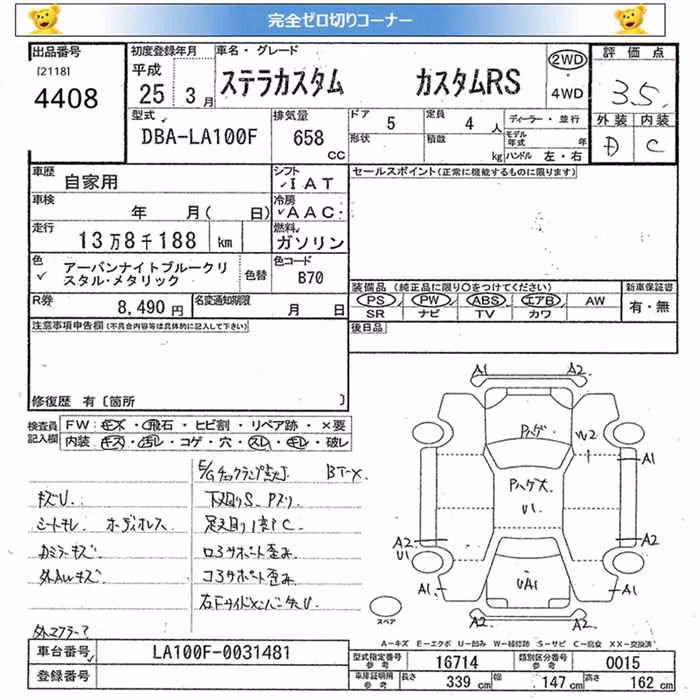 完全ゼロ切りコーナー
出品番号
[2118]
4408
初度登録年月
平成
25年 3月
車名・グレード
ステラカスタム カスタムRS
2WD
・
4WD
評価点
3.5
外装 内装
D C
型式
DBA-LA100F
排気量
658
CC
ドア
5
形状
定員
4人
積載
kg
ディーラー・並行
モデル年式 年
ハンドル 左・右
車歴
自家用
シフト
IAT
セールスポイント(正常に機能するものに限ります)
車検
年 月( 日)
冷房
AAC
走行
13万8千188 km
燃料
ガソリン
色
アーバンナイトブルークリスタル・メタリック
色替
色コード
B70
装備品 (純正品に限り○をつけてください)
PS PW ABS エアB AW
SR ナビ TV カワ
新車保証書
有・無
R券
8,490円
名変通知期限
月 日
後日品
注意事項申告欄(不具合内容等は具体的に記入して下さい)
修復歴 有〔箇所 〕
検査員記入欄
FW:キズ・飛石・ヒビ割・リペア跡・×要
内装:キズ・汚レ・コゲ・穴・スレ・キレ・破レ
E/Gチェックランプ点灯 BT-X
キズU.
下廻りS、Pスリ
シートキレ ホーディオレス
足廻り1部PC
カミラーキズ
ロ3サポート歪み
外AWキズ
コ3サポート歪み
外マフラー?
A1 A2
Pハゲ
W2
A1
Pハゲ大
U1
A2
U1
A2
A1
UA1
A1
A2
A2
スペア
A-キズ E-エクボ U-凹み W-補修跡 S-サビ C-腐食 XX-交換済
車台番号
LA100F-0031481
登録番号
型式指定番号
参考
16714
類別区分番号
参考
0015
車庫証明用
参考
長さ
339 cm
幅
147 cm
高さ
162 cm